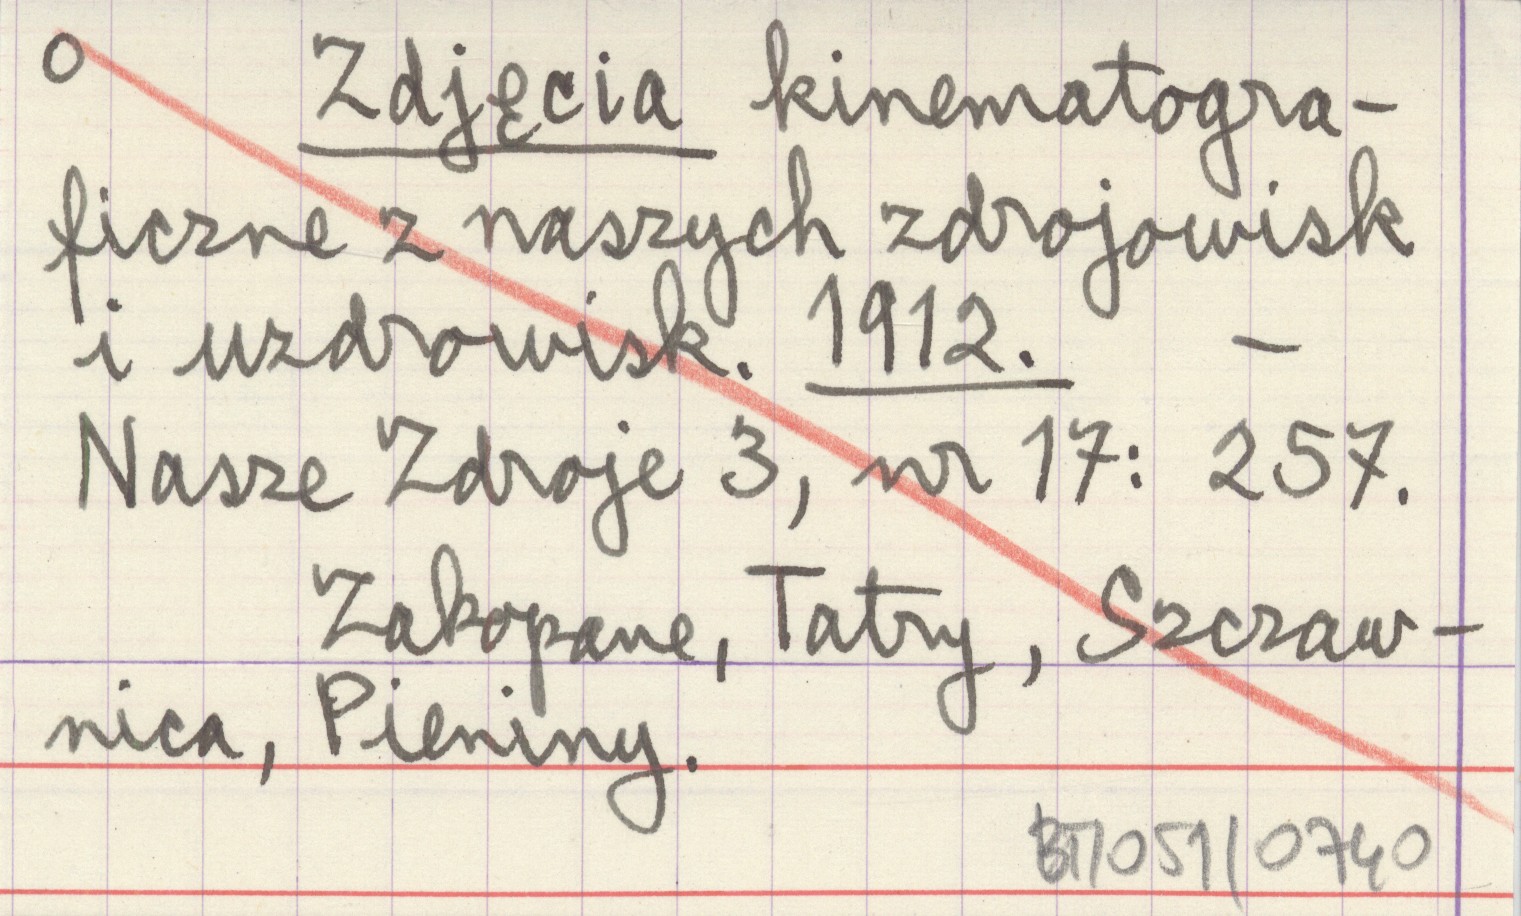 o Zdjęcia kinematogra-
ficzne z naszych zdrojowisk
i uzdrowisk. 1912. –
Nasze Zdroje 3, nr 17: 257.
Zakopane, Tatry, Szczaw-
nica, Pieniny.
BT/051/0740